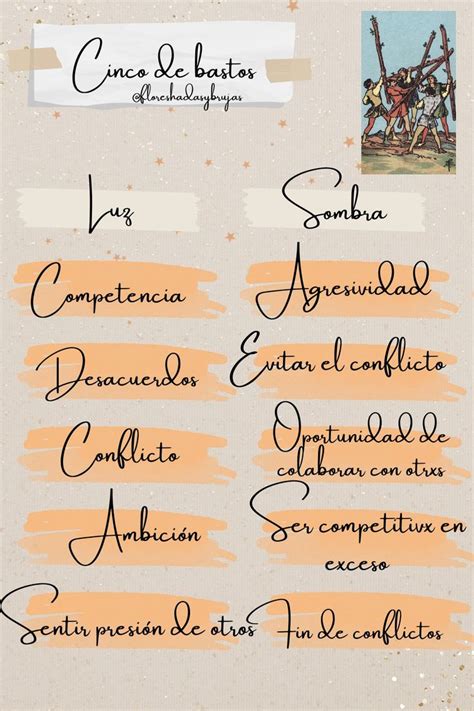 Cinco de bastos
@floreshadasybrujas
Luz
Sombra
Competencia
Agresividad
Desacuerdos
Evitar el conflicto
Conflicto
Oportunidad de
colaborar con otrxs
Ambición
Ser competitivx en
exceso
Sentir presión de otros
Fin de conflictos